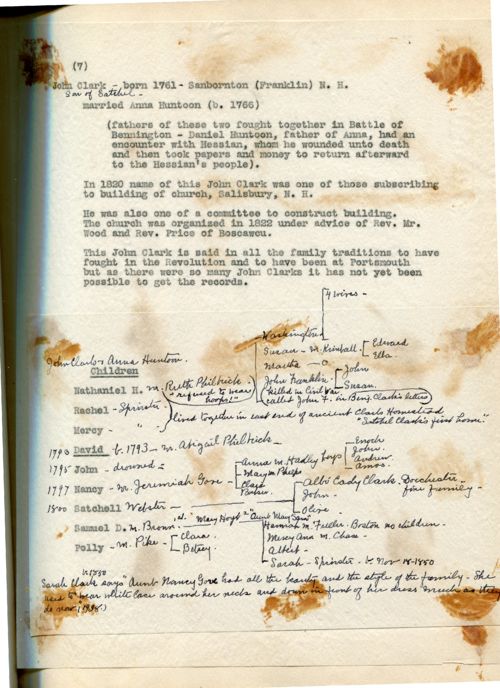 (7)
John Clark - born 1761 - Sanbornton (Franklin) N. H.
Son of Satchel -
married Anna Huntoon (b. 1766)
(fathers of these two fought together in Battle of
Bennington - Daniel Huntoon, father of Anna, had an
encounter with Hessian, whom he wounded unto death
and then took papers and money to return afterward
to the Hessian's people).
In 1820 name of this John Clark was one of those subscribing
to building of church, Salisbury, N. H.
He was also one of a committee to construct building.
The church was organized in 1822 under advice of Rev. Mr.
Wood and Rev. Price of Boscawcu.
This John Clark is said in all the family traditions to have
fought in the Revolution and to have been at Portsmouth
but as there were so many John Clarks it has not yet been
possible to get the records.
4 wives -
Washington
Susan - m. Kimball - Edward
Ella.
Martha - 0
John Franklin - John
Susan.
killed in Civil War
called John F. in Benj. Clark's letters
John Clark & Anna Huntoon.
Children
Nathaniel H. m. Ruth Philbrick -
"refused to wear hoops!"
Rachel - Spinster
Mercy - "
lived together in east end of ancient Clark Homestead
"Satchel Clark's first home."
1790 David b. 1793 - m. Abigail Philbrick -
1795 John - drowned -
1797 Nancy - m. Jeremiah Gore -
Anna m. Hadley
Enoch
John.
Andrew.
Amos.
Mary m. Phelps
Clara
1800 Satchell Webster -
m. "Mary Hoyt" "Aunt Mary
Albi Cady Clark. Dorchester.
fine family -
John.
Olive
Samuel D. m. Brown.
Hannah M. Fuller. Boston no children.
Mercy Ann M. Chase.
Albert
Sarah - Spinster - b. Nov 18-1850
Polly - m. Pike - Clara
Betsey.
b. 1850
Sarah Clark says "Aunt Nancy Gore had all the beauty and the style of the family - She
used to wear white lace around her neck and down in front of her dress much as they
do now (1935)